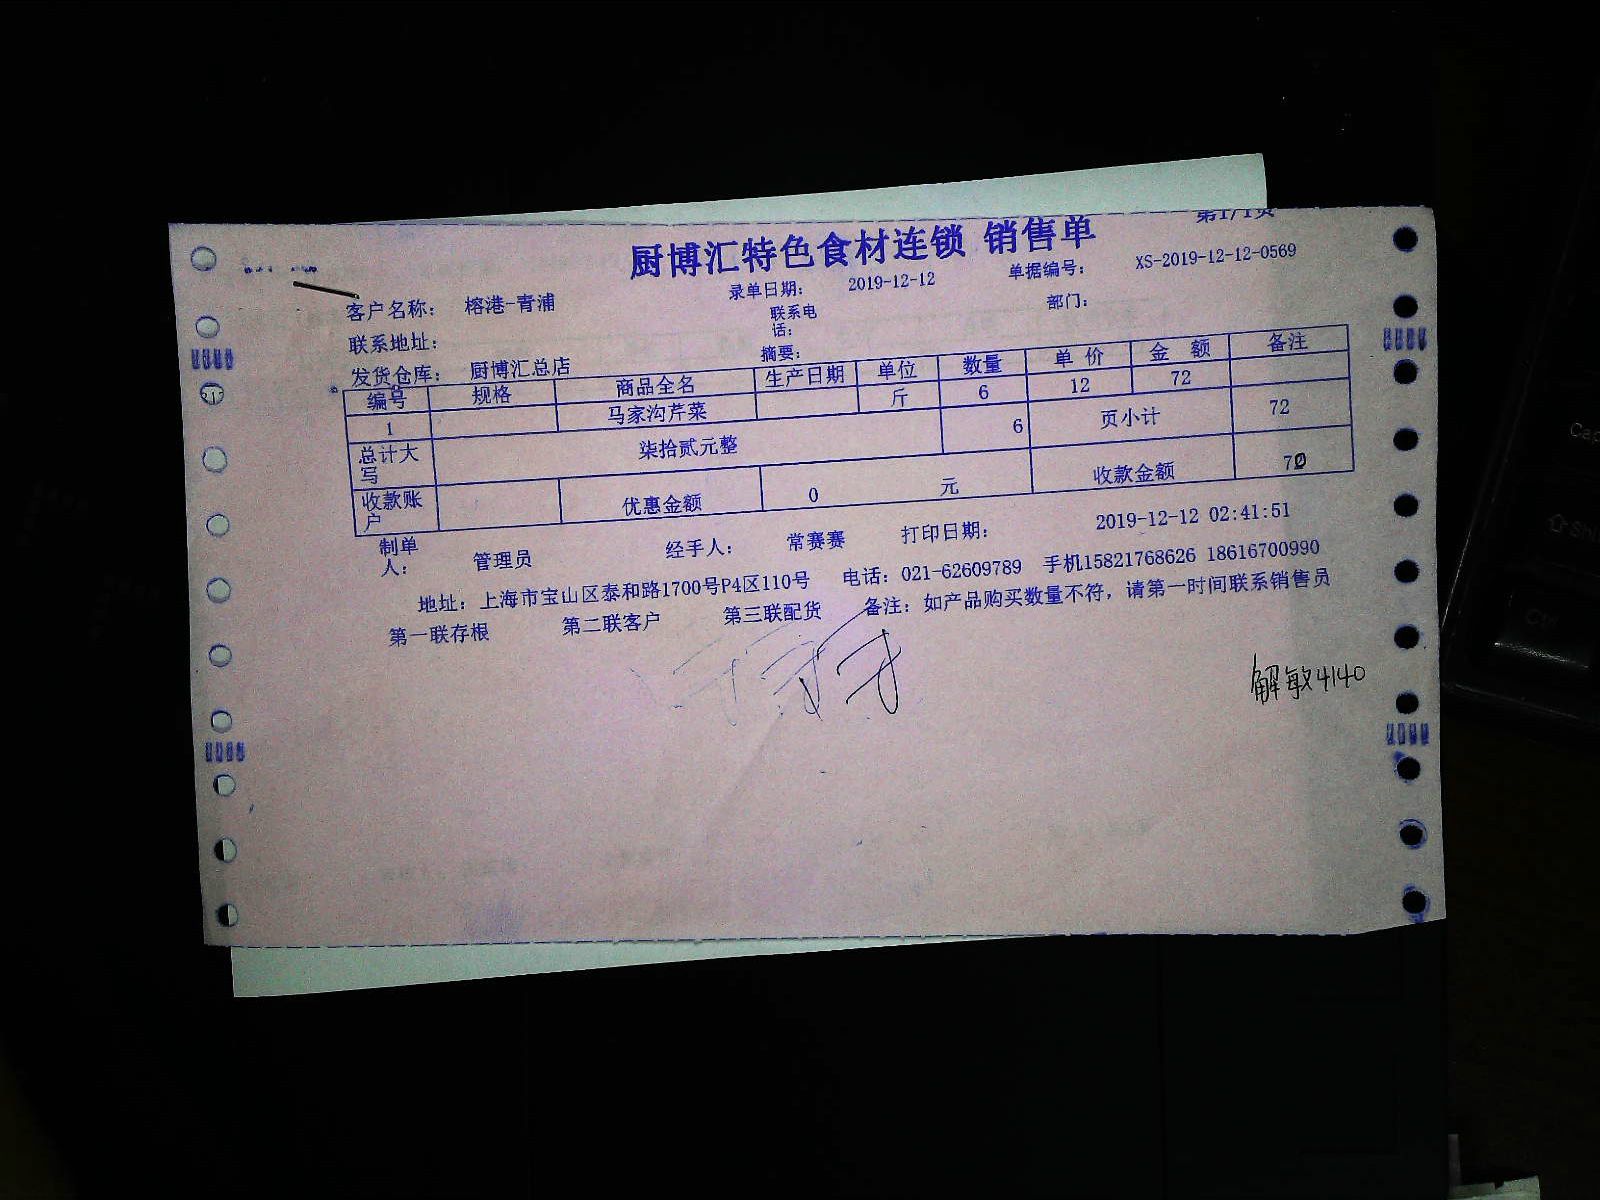 第1/1页
厨博汇特色食材连锁 销售单
客户名称： 榕港-青浦 录单日期： 2019-12-12 单据编号： XS-2019-12-12-0569
联系地址： 联系电话： 部门：
发货仓库： 厨博汇总店 摘要：
编号 规格 商品全名 生产日期 单位 数量 单价 金额 备注
1 马家沟芹菜 斤 6 12 72
总计大写 柒拾贰元整 6 页小计 72
收款账户 优惠金额 0 元 收款金额
制单人： 管理员 经手人： 常赛赛 打印日期： 2019-12-12 02:41:51
地址：上海市宝山区泰和路1700号P4区110号 电话：021-62609789 手机15821768626 18616700990
第一联存根 第二联客户 第三联配货 备注：如产品购买数量不符，请第一时间联系销售员
解敏4140